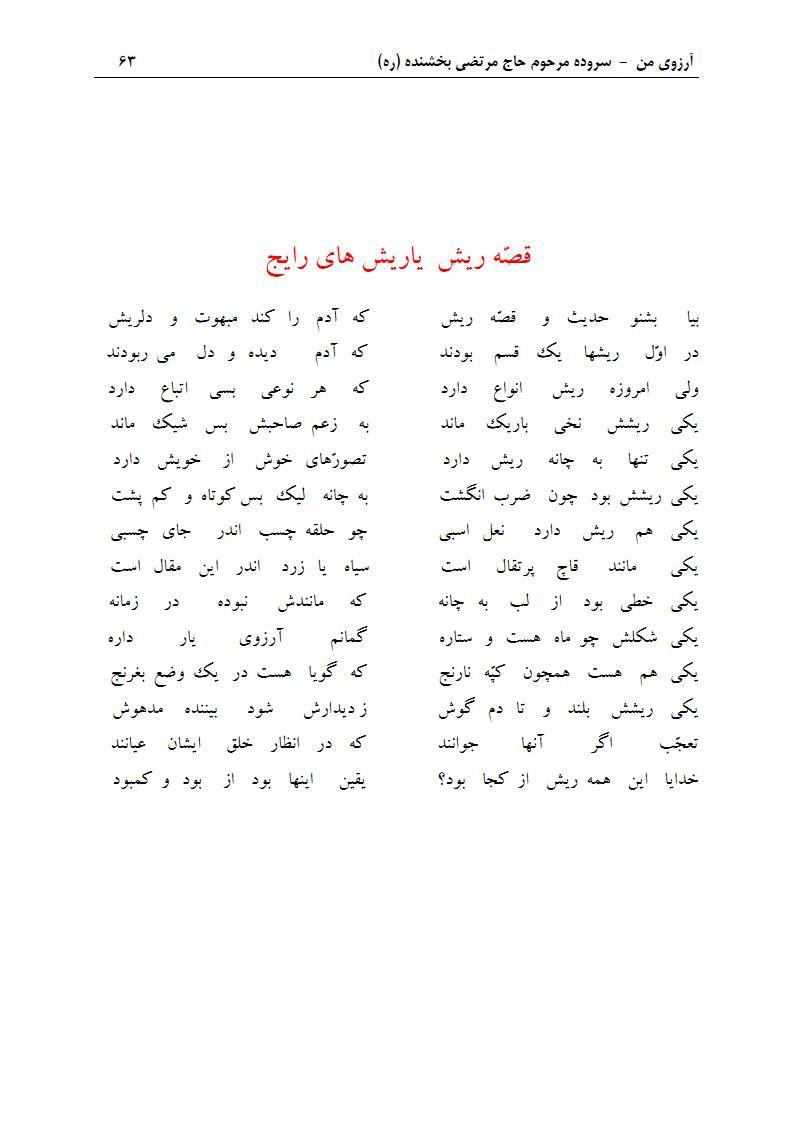 آرزوی من - سروده مرحوم حاج مرتضی بخشنده (ره) ۶۳
قصّه ریش یاریش های رایج
بیا بشنو حدیث و قصّه ریش که آدم را کند مبهوت و دلریش
در اوّل ریشها یک قسم بودند که آدم دیده و دل می ربودند
ولی امروزه ریش انواع دارد که هر نوعی بسی اتباع دارد
یکی ریشش نخی باریک ماند به زعم صاحبش بس شیک ماند
یکی تنها به چانه ریش دارد تصورّهای خوش از خویش دارد
یکی ریشش بود چون ضرب انگشت به چانه لیک بس کوتاه و کم پشت
یکی هم ریش دارد نعل اسبی چو حلقه چسب اندر جای چسبی
یکی مانند قاچ پرتقال است سیاه یا زرد اندر این مقال است
یکی خطی بود از لب به چانه که مانندش نبوده در زمانه
یکی شکلش چو ماه هست و ستاره گمانم آرزوی یار داره
یکی هم هست همچون کپّه نارنج که گویا هست در یک وضع بغرنج
یکی ریشش بلند و تا دم گوش ز دیدارش شود بیننده مدهوش
تعجّب اگر آنها جوانند که در انظار خلق ایشان عیانند
خدایا این همه ریش از کجا بود؟ یقین اینها بود از بود و کمبود